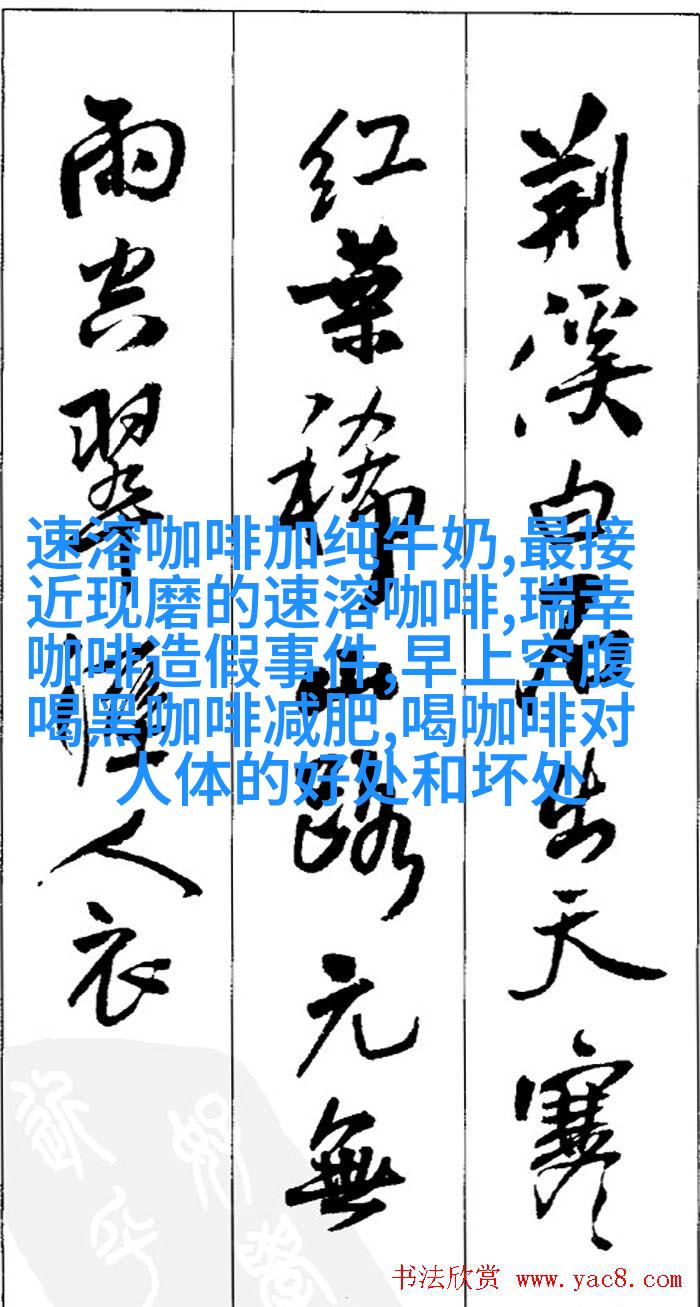 荆溪白石出天寒
红葉稀山路元無
雨空翠濕人衣
速溶咖啡加纯牛奶,最接
近现磨的速溶咖啡,瑞幸
咖啡造假事件,早上空腹
喝黑咖啡减肥,喝咖啡对
人体的好处和坏处
书法欣赏 www.yac8.com